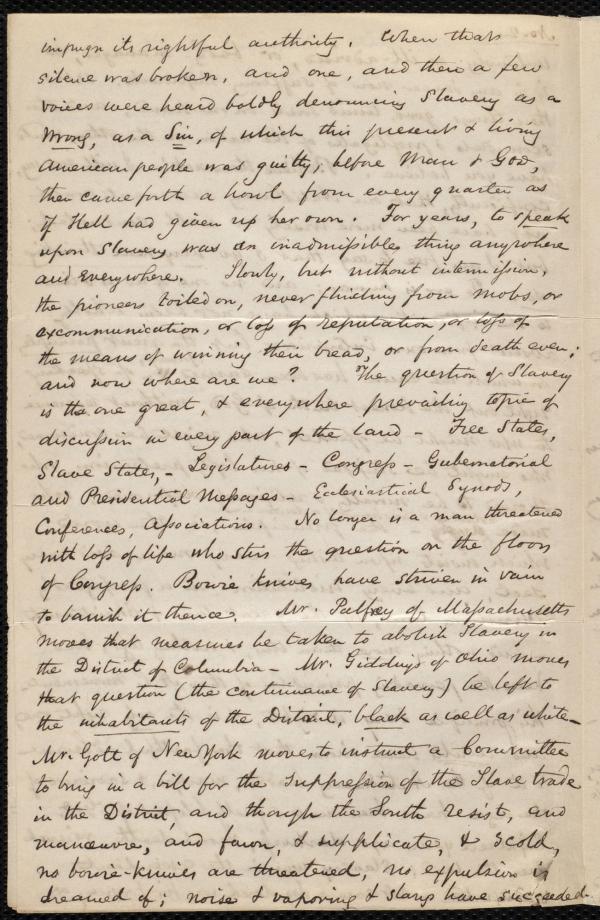 impugn its rightful authority. When that
silence was broken, and one, and then a few
voices were heard boldly denouncing Slavery as a
Wrong, as a Sin, of which this present & living
American people was guilty, before Man & God,
then came forth a howl from every quarter as
if Hell had given up her own. For years, to speak
upon Slavery was an inadmissible thing anywhere
and everywhere. Slowly, but without intermission,
the pioneers toiled on, never flinching from mobs, or
excommunication, or loss of reputation, or loss of
the means of winning their bread, or from death even;
and now where are we? The question of Slavery
is the one great, & everywhere prevailing topic of
discussion in every part of the land - Free States,
Slave States, - Legislatures - Congress - Gubernatorial
and Presidential Messages - Ecclesiastical Synods,
Conferences, Associations. No longer is a man threatened
with loss of life who stirs the question on the floor
of Congress. Bowie knives have striven in vain
to banish it thence. Mr. Palfrey of Massachusetts
moves that measures be taken to abolish Slavery in
the District of Columbia - Mr. Giddings of Ohio moves
that question (the continuance of Slavery) be left to
the inhabitants of the District, black as well as white -
Mr. Gott of New York moves to instruct a Committee
to bring in a bill for the suppression of the Slave trade
in the District, and though the South resist, and
manœuvre, and fawn, & supplicate, & scold,
no bowie-knives are threatened, no expulsion is
dreamed of; noise & vaporing & slang have succeeded.